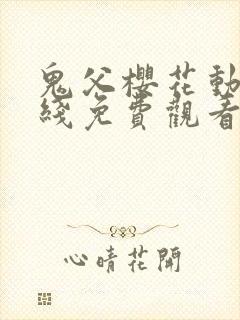 鬼父櫻花動
綫免費觀看
心晴花開